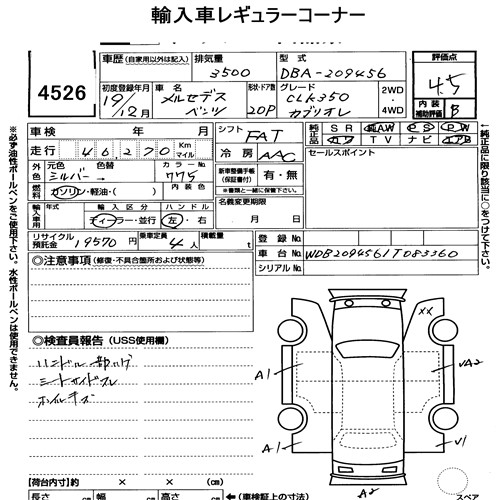 輸入車レギュラーコーナー
4526
車歴 (自家用以外は記入)
排気量
3500
型式
DBA-209456
評価点
4.5
内装
補助評価
B
初度登録年月
19/12月
車名
メルセデス
ベンツ
形状・ドア数
2DP
グレード
CLK350
カブリオレ
2WD
4WD
車検 年 月
シフト
FAT
純正品
SR AW PS PW
カワ TV ナビ エアB
走行 46,270 Km
マイル
冷房
AAC
セールスポイント
外色
元色 色替
シルバー →
カラーNo.
775
新車整備手帳
(保証書付)
有・無
※書類と一緒に保管下さい。
燃料
ガソリン・軽油・( )
内装色
名義変更期限
月 日
輸入車用
年式
輸入区分
ディーラー・並行
ハンドル
左・右
リサイクル
預託金
19570 円
乗車定員
4人
積載量
t
登録No.
車台No.
WDB2094561T083360
シリアルNo.
◎注意事項 (修復・不具合箇所および状態等)
◎検査員報告 (USS使用欄)
ハンドル一部ハゲ
シートサイドスレ
ホイルキズ
××
A1
A1
A2
A2
V1
スペア
【荷台内寸】約 × × cm
長さ cm 幅 cm 高さ cm
(車検証上の寸法)
※必ず油性ボールペンをご使用下さい。水性ボールペンは使用できません。
↑純正品に限り該当に○をつけて下さい。